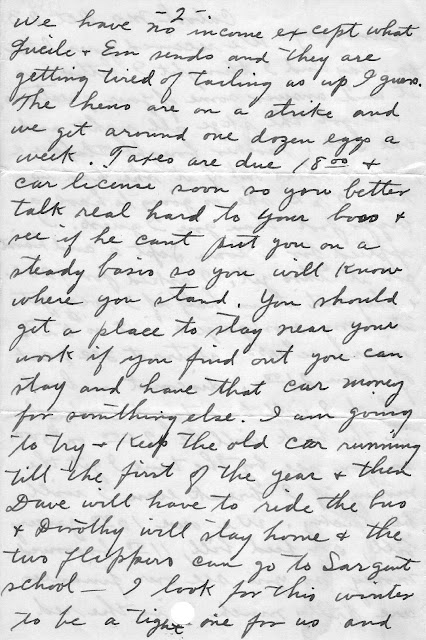 -2-
we have no income except what
Lucile + Em sends and they are
getting tired of tailing us up I guess.
The hens are on a strike and
we get around one dozen eggs a
week. Taxes are due 18.00 +
car license soon so you better
talk real hard to your boss +
see if he cant put you on a
steady basis so you will know
where you stand. You should
get a place to stay near your
work if you find out you can
stay and have that car money
for something else. I am going
to try + keep the old car running
till the first of the year + then
Dave will have to ride the bus
+ Dorothy will stay home + the
two flippers can go to Sargent
school - I look for this winter
to be a tight one for us and